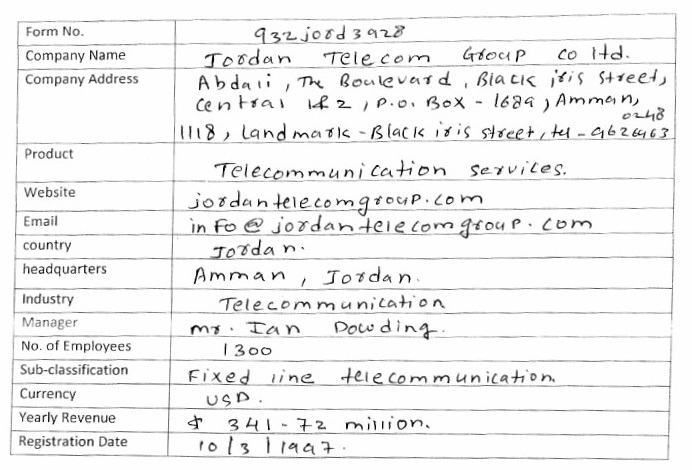 Form No. 932jord3928
Company Name Jordan Telecom Group co ltd.
Company Address Abdali, The Boulevard, Black iris street,
central 1&2, P.O. Box - 1689, Amman,
1118, Landmark - Black iris street, tel - 9626463
0248
Product Telecommunication services.
Website jordantelecomgroup.com
Email info@jordantelecomgroup.com
country Jordan.
headquarters Amman, Jordan.
Industry Telecommunication
Manager mr. Ian Dowding.
No. of Employees 1300
Sub-classification Fixed line telecommunication.
Currency USD.
Yearly Revenue $ 341-72 million.
Registration Date 10/3/1997.